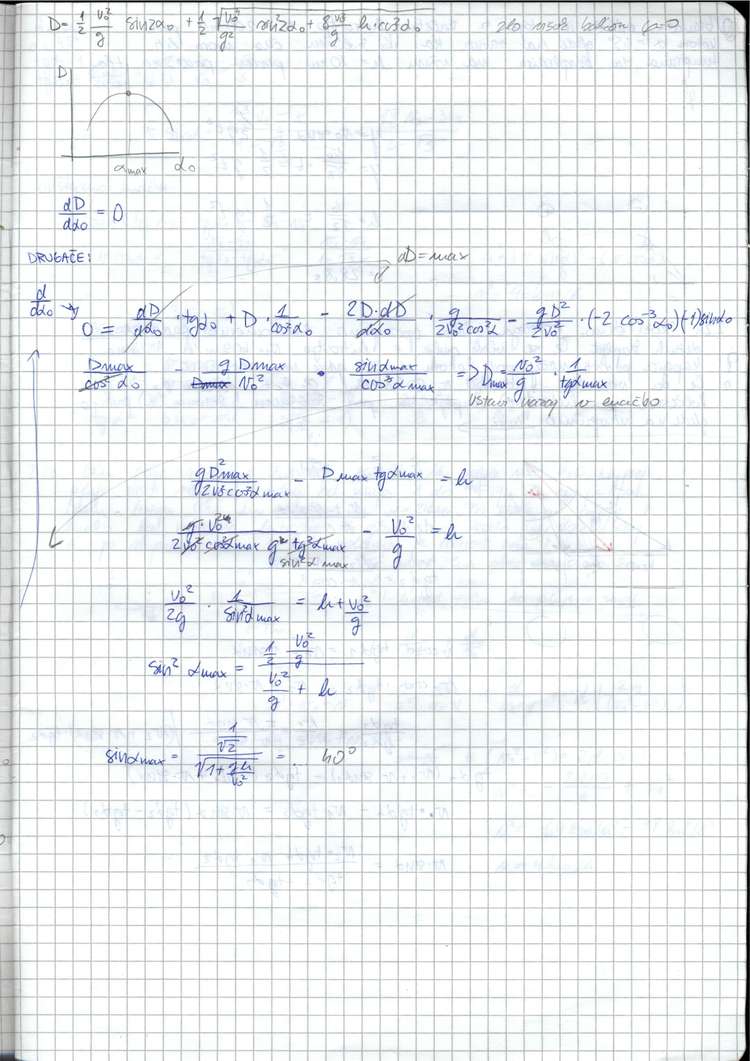 D = 1/2 v₀²/g sin2α₀ + 1/2 √(v₀⁴/g² sin²2α₀ + 8 v₀²/g h·cos²α₀) zlo visok balkon
D
αmax α₀
dD/dα₀ = 0
DRUGAČE:
dD = max
d/dα₀ → 0 = dD/dα₀ · tgα₀ + D · 1/cos²α₀ - 2D·dD/dα₀ · g/2v₀²cos²α - gD²/2v₀² · (-2 cos⁻³α₀)(-1)sinα₀
Dmax/cos²α₀ - g Dmax/v₀² · sinαmax/cos³αmax => Dmax = v₀²/g · 1/tgαmax
v enačbo
gD²max/2v₀²cos²αmax - Dmax tgαmax = h
g·v₀⁴/2v₀²cos²αmax g² tg²αmax - v₀²/g = h
sin²αmax
v₀²/2g · 1/sin²αmax = h + v₀²/g
sin²αmax = 1/2 v₀²/g / v₀²/g + h
sinαmax = 1/√2 / √(1 + gh/v₀²) = .. 40°